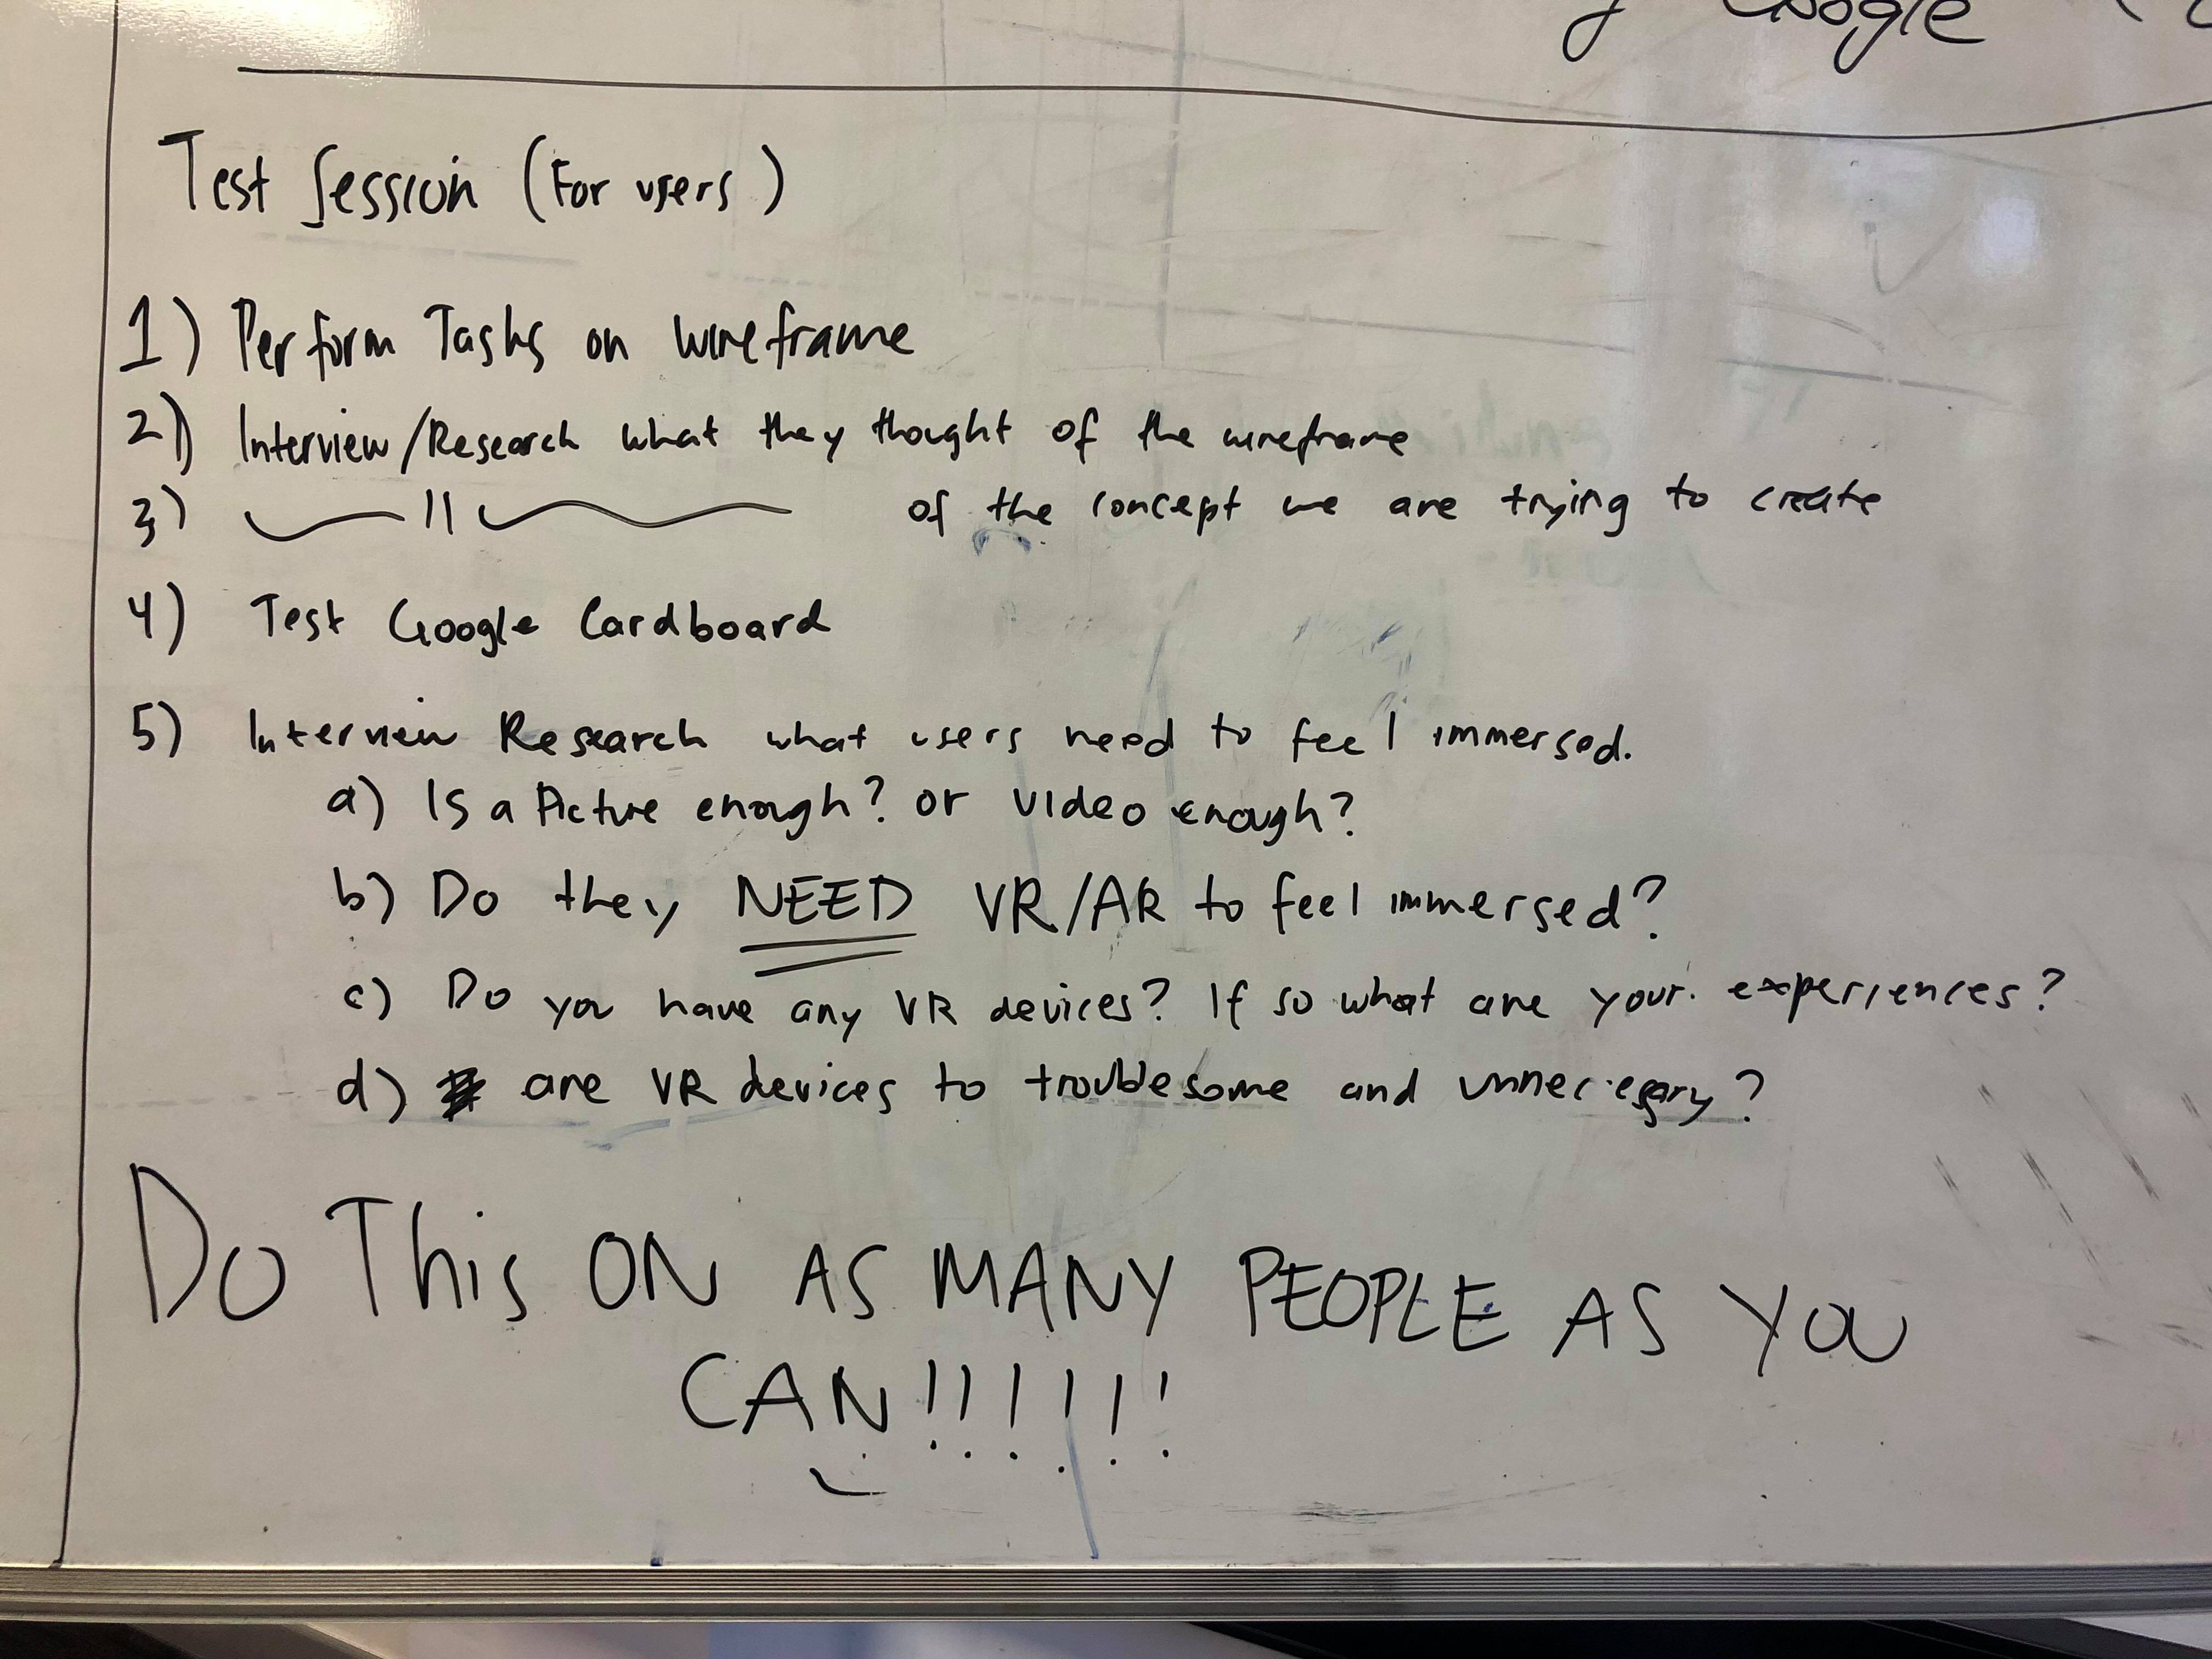 Google
Test Session (For users)
1) Perform Tasks on wireframe
2) Interview/Research what they thought of the wireframe
3) —— 11 —— of the concept we are trying to create
4) Test Google Cardboard
5) Interview Research what users need to feel immersed.
a) Is a Picture enough? or video enough?
b) Do they NEED VR/AR to feel immersed?
c) Do you have any VR devices? If so what are your experiences?
d) are VR devices to troublesome and unneccesary?
Do This ON AS MANY PEOPLE AS YOU
CAN!!!!!!